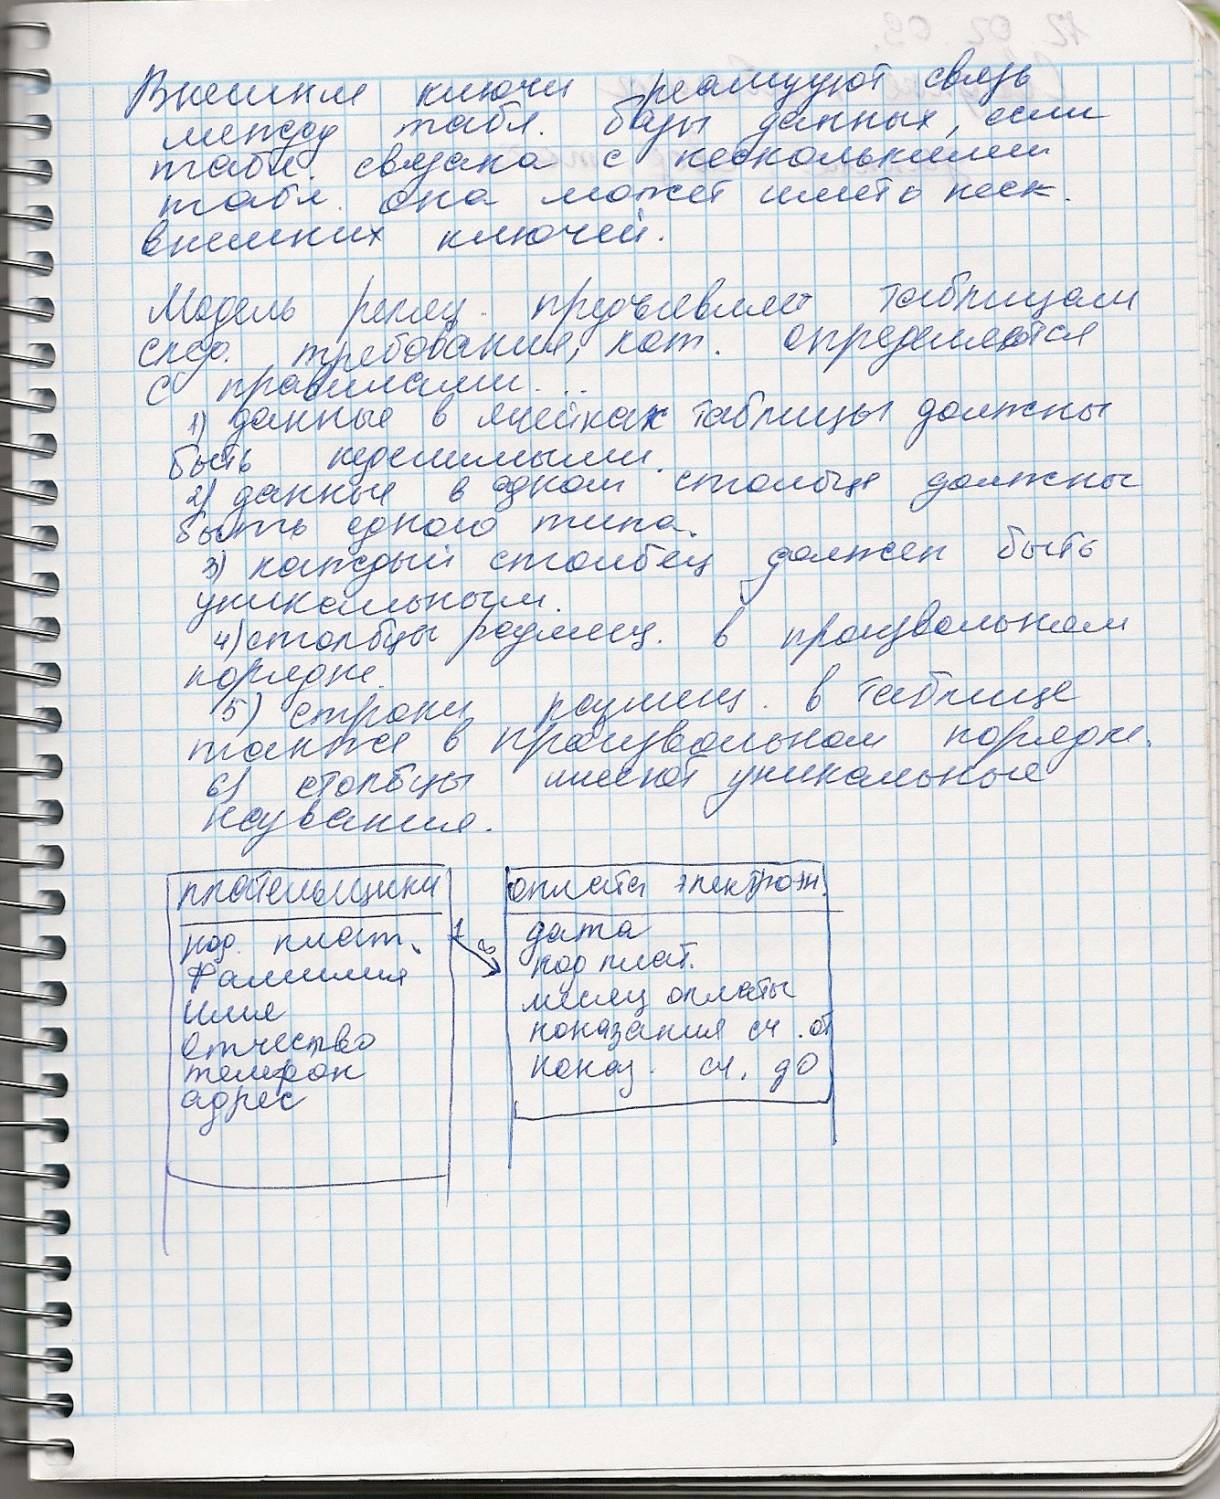 Внешние ключи реализуют связь
между табл. базы данных, если
табл. связана с несколькими
табл. она может иметь неск.
внешних ключей.
Модель реляц. предъявляет таблицам
след. требования, кот. определяются
с правилами...
1) данные в ячейках таблицы должны
быть неделимыми.
2) данные в одном столбце должны
быть одного типа.
3) каждый столбец должен быть
уникальным.
4) столбцы размещ. в произвольном
порядке.
5) строки размещ. в таблице
также в произвольном порядке.
6) столбцы имеют уникальные
названия.
плательщики
код. плат.
Фамилия
имя
отчество
телефон
адрес
1
∞
оплата электроэн.
дата
код плат.
месяц оплаты
показания сч. от
показ. сч. до